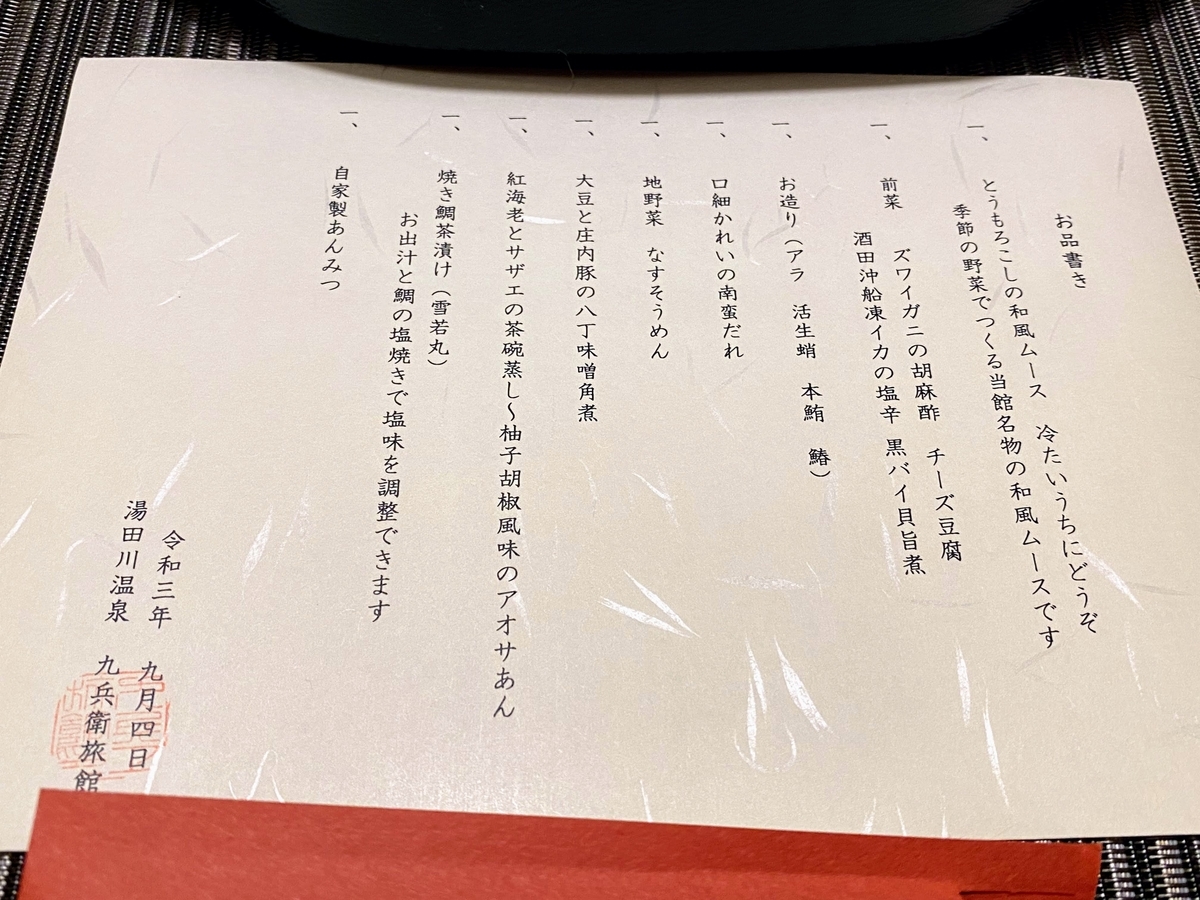 お品書き
一、とうもろこしの和風ムース　冷たいうちにどうぞ
季節の野菜でつくる当館名物の和風ムースです
一、前菜　ズワイガニの胡麻酢　チーズ豆腐
酒田沖船凍イカの塩辛　黒バイ貝旨煮
一、お造り（アラ　活生蛸　本鮪　鰆）
一、口細かれいの南蛮だれ
一、地野菜　なすそうめん
一、大豆と庄内豚の八丁味噌角煮
一、紅海老とサザエの茶碗蒸し～柚子胡椒風味のアオサあん
一、焼き鯛茶漬け（雪若丸）
お出汁と鯛の塩焼きで塩味を調整できます
一、自家製あんみつ
令和三年　九月四日
湯田川温泉　九兵衛旅館